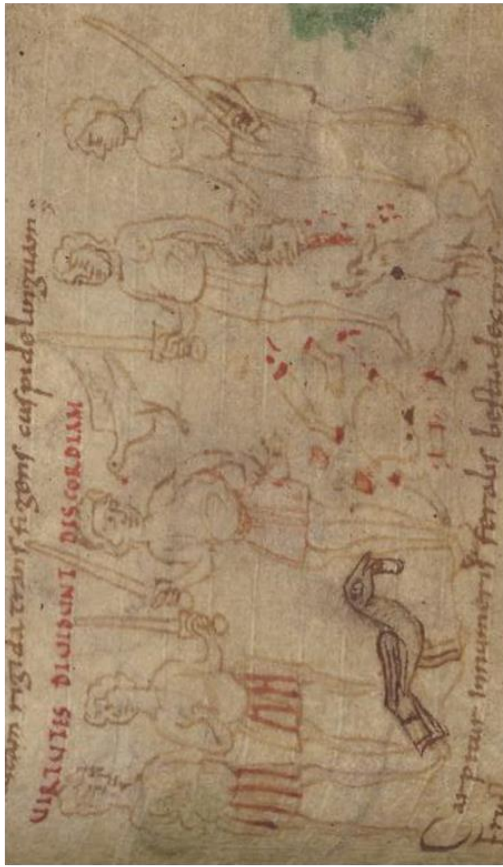 rigida transfigens cuspide linguam.
UIRTUTES DIUIDUNT DISCORDIAM
Carpitur innumeris feralis bestia dextris